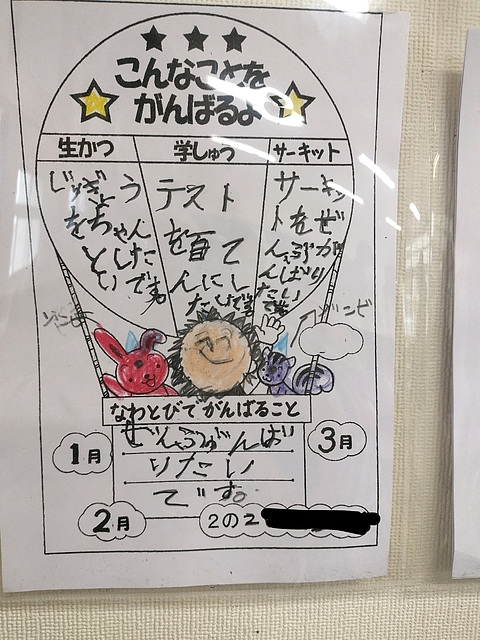 こんなことを
がんばるよ
生かつ
学しゅう
サーキット
じゅぎょう
をちゃん
とした
いです。
テスト
を百て
んにし
たいです
サーキッ
トをぜ
んぶが
んばり
たい
です
ゾンビ
ゾンビ
なわとびでがんばること
ぜんぶがんば
りたい
です。
1月
3月
2月
2の2